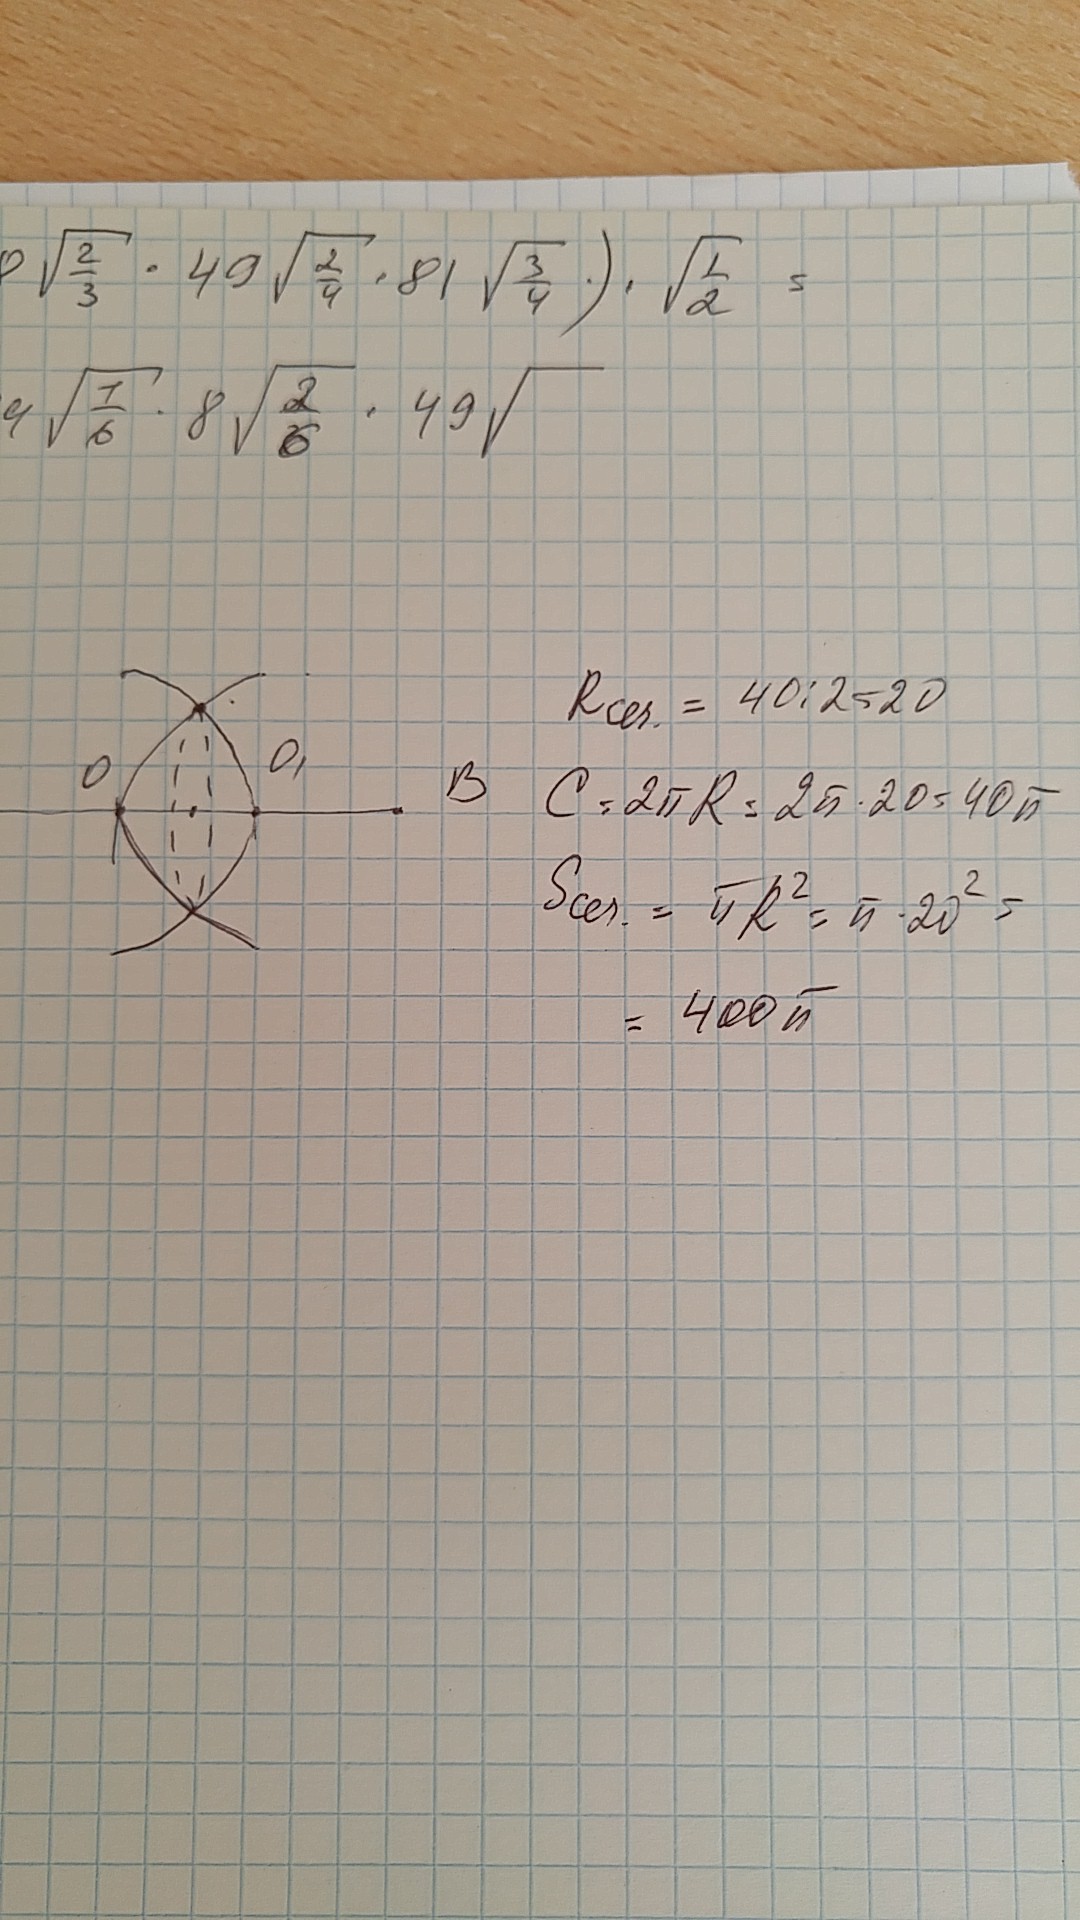 8√(2/3) · 49√(2/4) · 81√(3/4) ·) · √(1/2) =
4√(1/6) · 8√(2/6) · 49√
O O₁
B
Rсеч. = 40:2=20
C = 2πR = 2π·20 = 40π
Sсеч. = πR² = π·20² =
= 400π